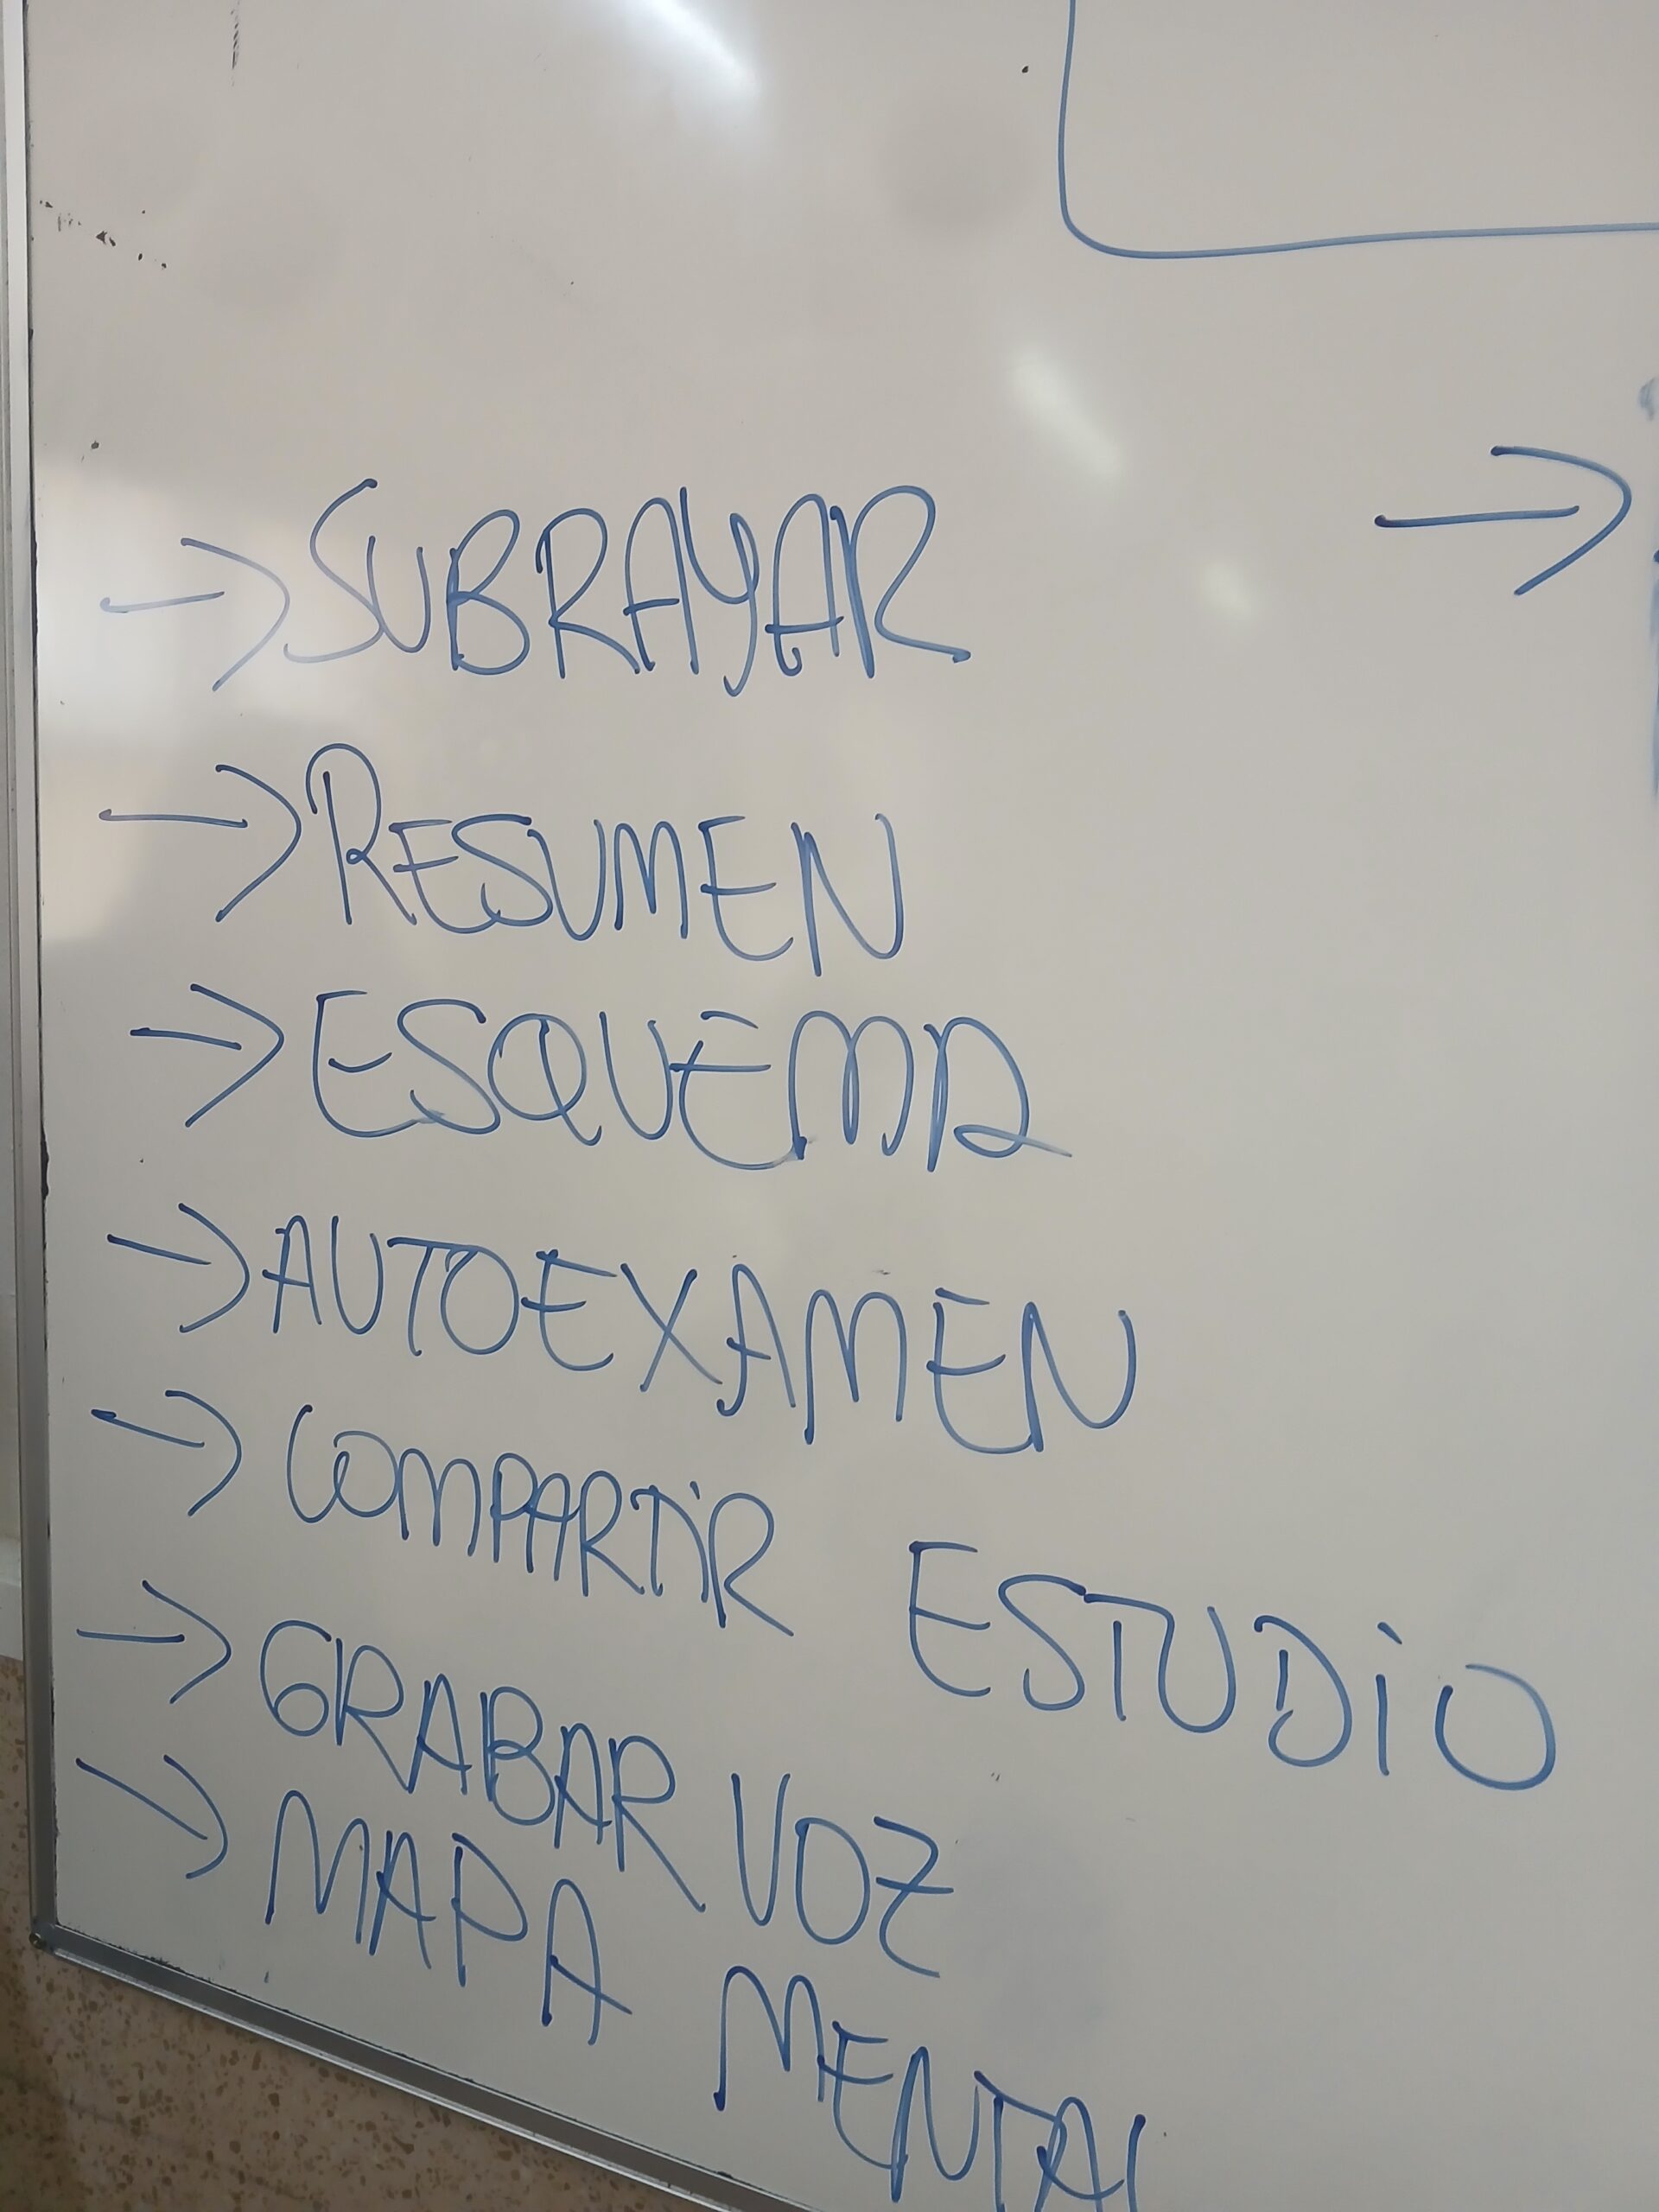 → SUBRAYAR
→ RESUMEN
→ ESQUEMA
→ AUTOEXAMEN
→ COMPARTIR ESTUDIO
→ GRABAR VOZ
→ MAPA MENTAL
→